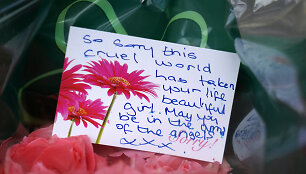 So sorry this
cruel world
has taken
your life
beautiful
girl. May you
be in the army
of the angels
xxxx
Sorry!